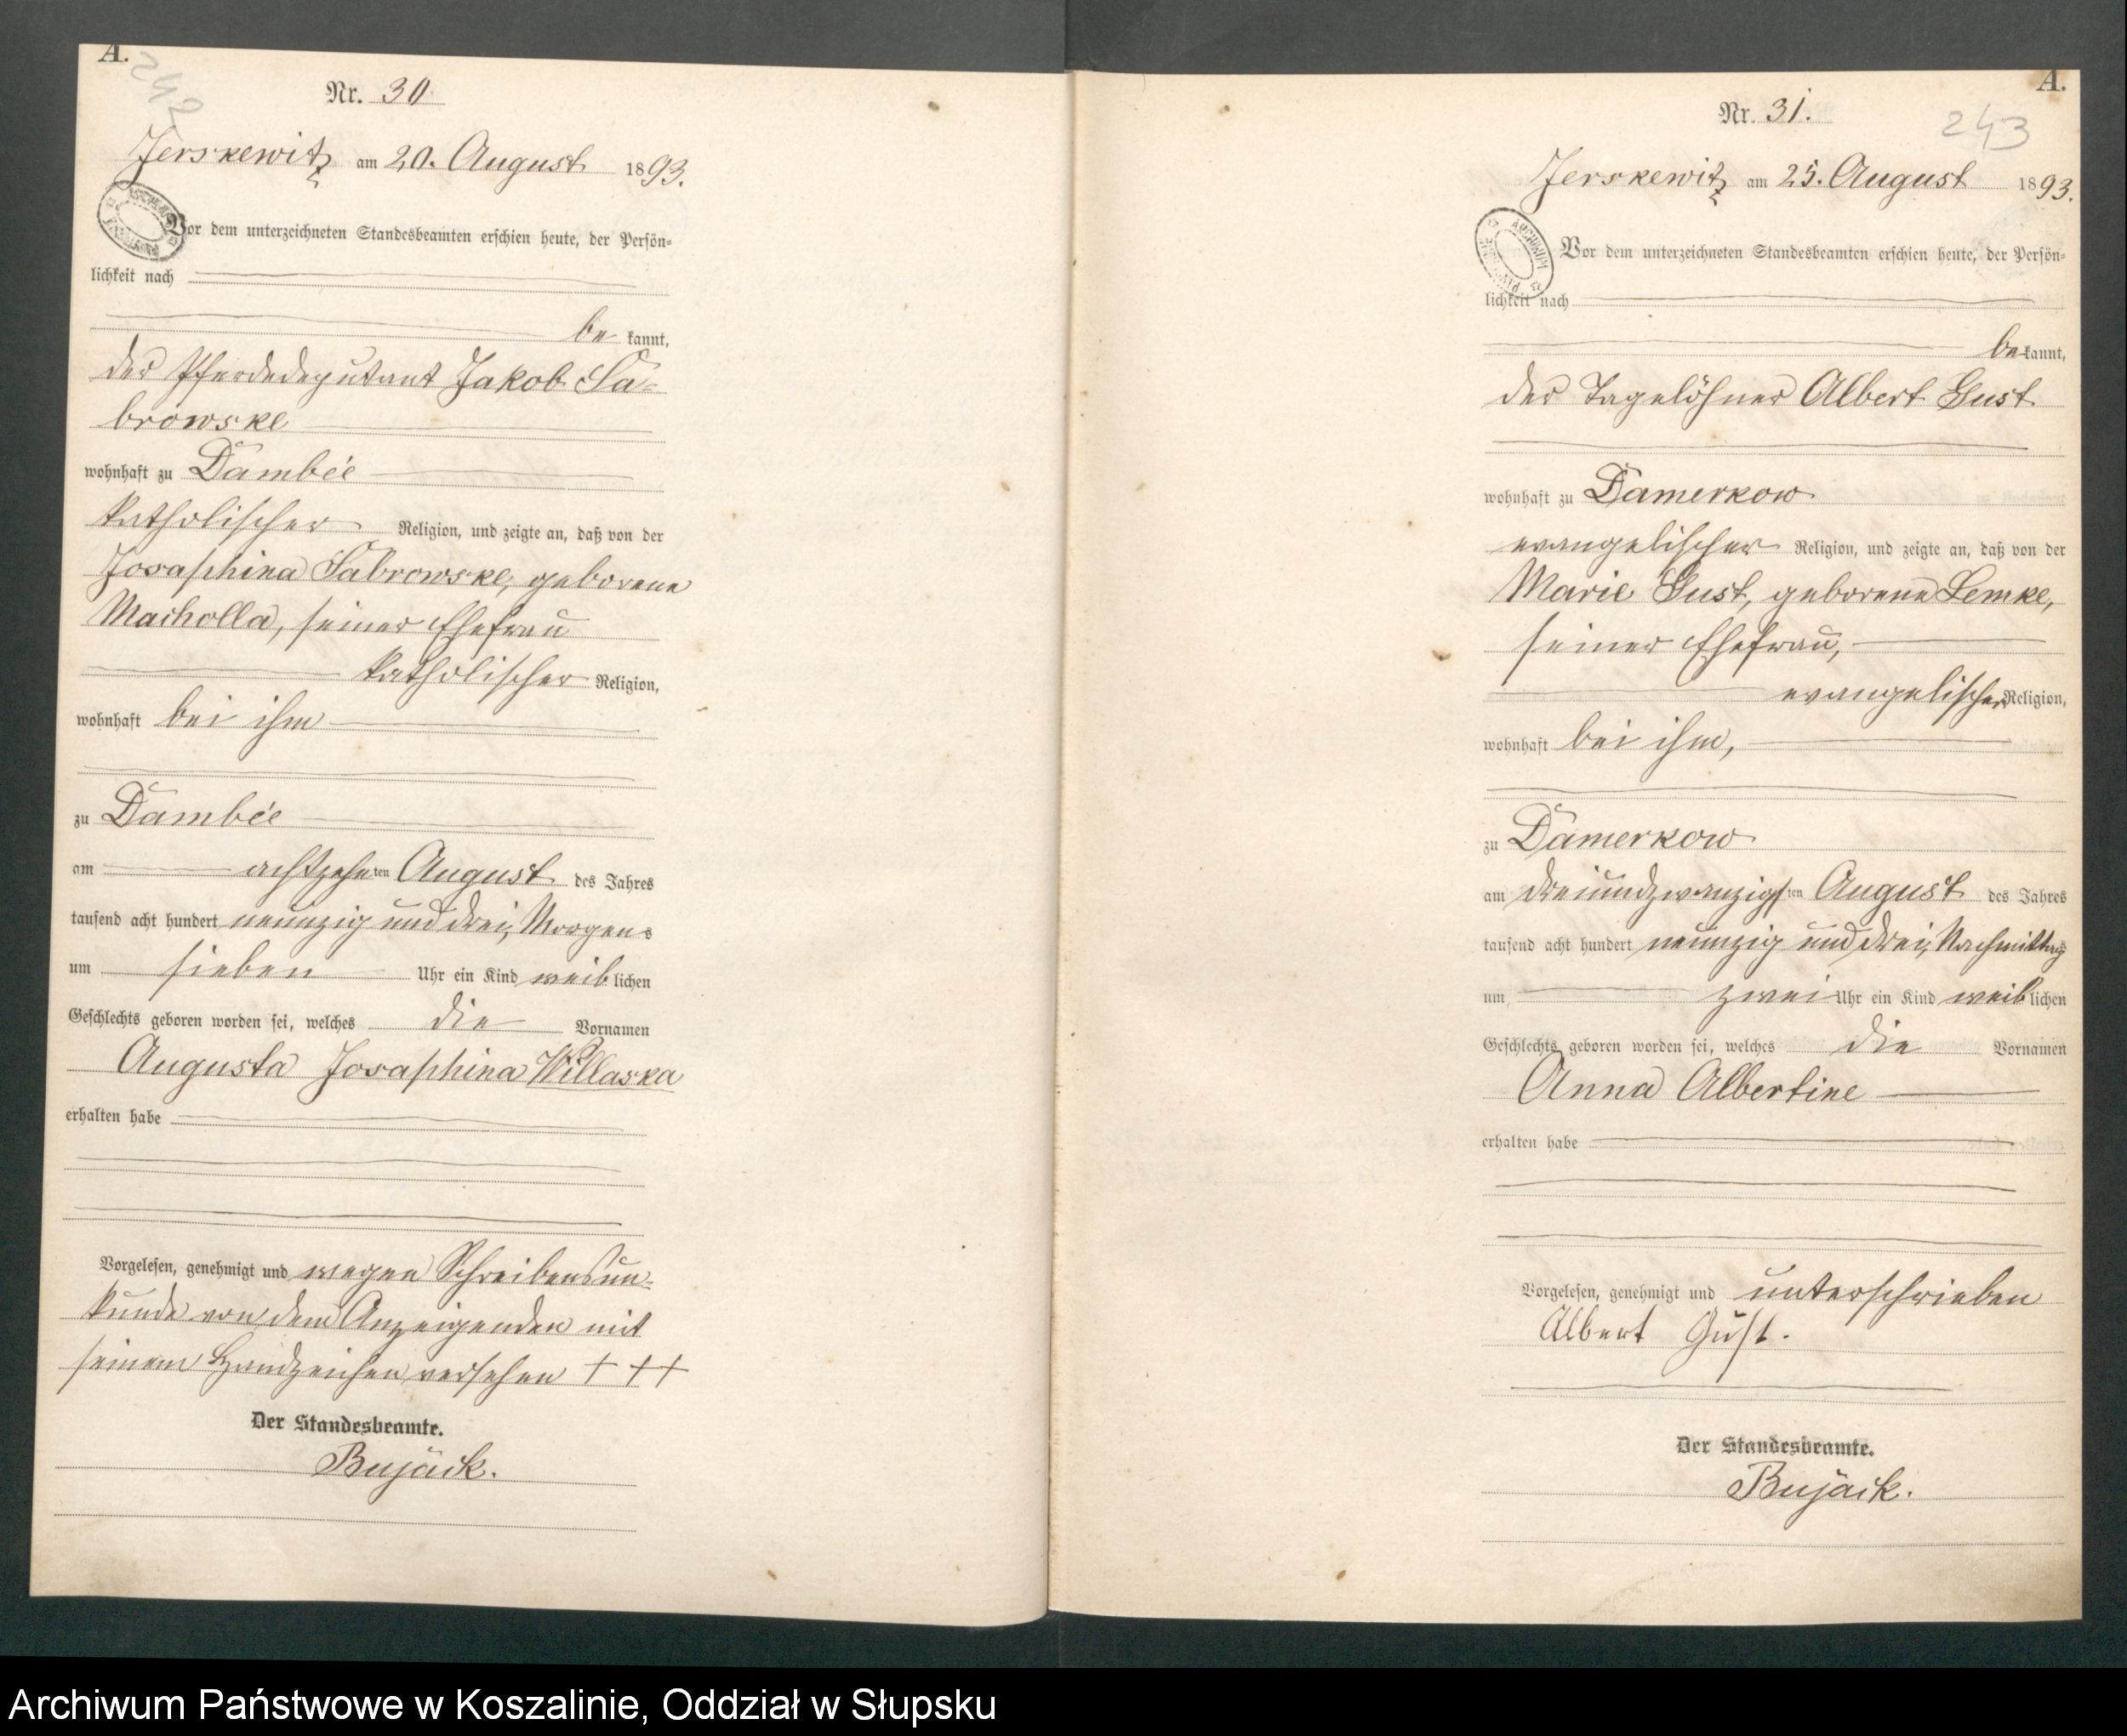 A.
242
Nr. 30
Jerskewitz am 20. August 1893.
Vor dem unterzeichneten Standesbeamten erschien heute, der Persön-
lichkeit nach
be kannt,
der Pferdedeputant Jakob Sa-
browske
wohnhaft zu Dambée
katholischer Religion, und zeigte an, daß von der
Josaphina Sabrowske, geborene
Macholla, seiner Ehefrau
katholischer Religion,
wohnhaft bei ihm
zu Dambée
am achtzehnten August des Jahres
tausend acht hundert neunzig und drei, Morgens
um sieben Uhr ein Kind weiblichen
Geschlechts geboren worden sei, welches die Vornamen
Augusta Josaphina Willaska
erhalten habe
Vorgelesen, genehmigt und wegen Schreibensun-
kunde von dem Anzeigenden mit
seinem Handzeichen versehen + + +
Der Standesbeamte.
Bujack.
A.
243
Nr. 31.
Jerskewitz am 25. August 1893.
ARCHIWUM
Vor dem unterzeichneten Standesbeamten erschien heute, der Persön-
lichkeit nach
bekannt,
der Tagelöhner Albert Gust
wohnhaft zu Damerkow
evangelischer Religion, und zeigte an, daß von der
Marie Gust, geborene Lemke,
seiner Ehefrau,
evangelischer Religion,
wohnhaft bei ihm,
zu Damerkow
am dreiundzwanzigsten August des Jahres
tausend acht hundert neunzig und drei, Nachmittags
um zwei Uhr ein Kind weiblichen
Geschlechts geboren worden sei, welches die Vornamen
Anna Albertine
erhalten habe
Vorgelesen, genehmigt und unterschrieben
Albert Gust.
Der Standesbeamte.
Bujack.
Archiwum Państwowe w Koszalinie, Oddział w Słupsku